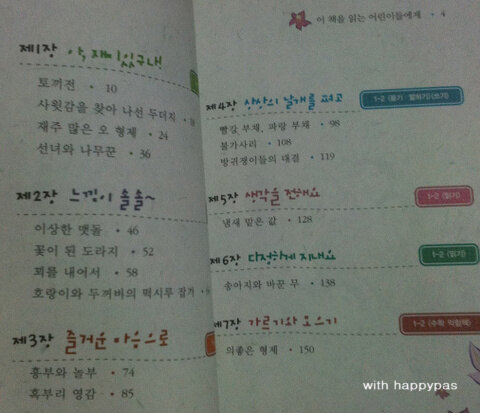 제1장 아, 재미있구나!
토끼전 • 10
사윗감을 찾아 나선 두더지
재주 많은 오 형제 • 24
선녀와 나무꾼 • 36
제2장 느낌이 솔솔~
이상한 맷돌 • 46
꽃이 된 도라지 • 52
꾀를 내어서 • 58
호랑이와 두꺼비의 떡시루 잡기
제3장 즐거운 마음으로
흥부와 놀부 • 74
혹부리 영감 • 85
이 책을 읽는 어린이들에게 • 4
제4장 상상의 날개를 펴고
1-2 (듣기 · 말하기)(쓰기)
빨강 부채, 파랑 부채 • 98
불가사리 • 108
방귀쟁이들의 대결 • 119
제5장 생각을 전해요
1-2 (읽기)
냄새 맡은 값 • 128
제6장 다정하게 지내요
1-2 (읽기)
송아지와 바꾼 무 • 138
제7장 가르기와 모으기
1-2 (수학 익힘책)
의좋은 형제 • 150
with happypas